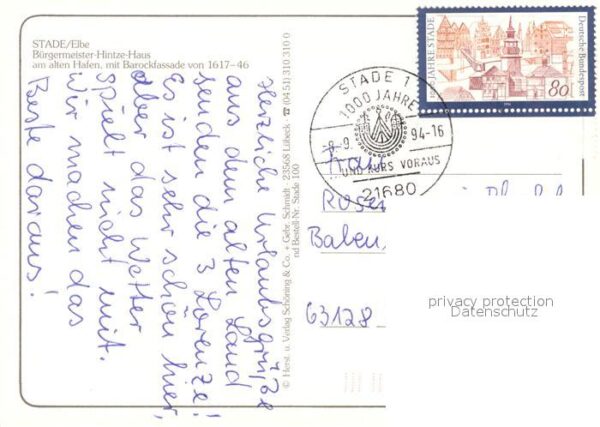 STADE/Elbe
Bürgermeister-Hintze-Haus
am alten Hafen, mit Barockfassade von 1617–46
Herzliche Urlaubsgrüße
aus dem alten Land
senden die 3 Lorenze!
Es ist sehr schön hier,
aber das Wetter
spielt nicht mit.
Wir machen das
Beste daraus!
© Herst. u. Verlag Schöning & Co. + Gebr. Schmidt · 23568 Lübeck · ☎ (04 51) 310 310 0
nd Bestell-Nr. Stade 100
JAHRE STADE
Deutsche Bundespost
80
STADE 1
1000 JAHRE
-9. 94-16
UND KURS VORAUS
21680
63128
privacy protection
Datenschutz